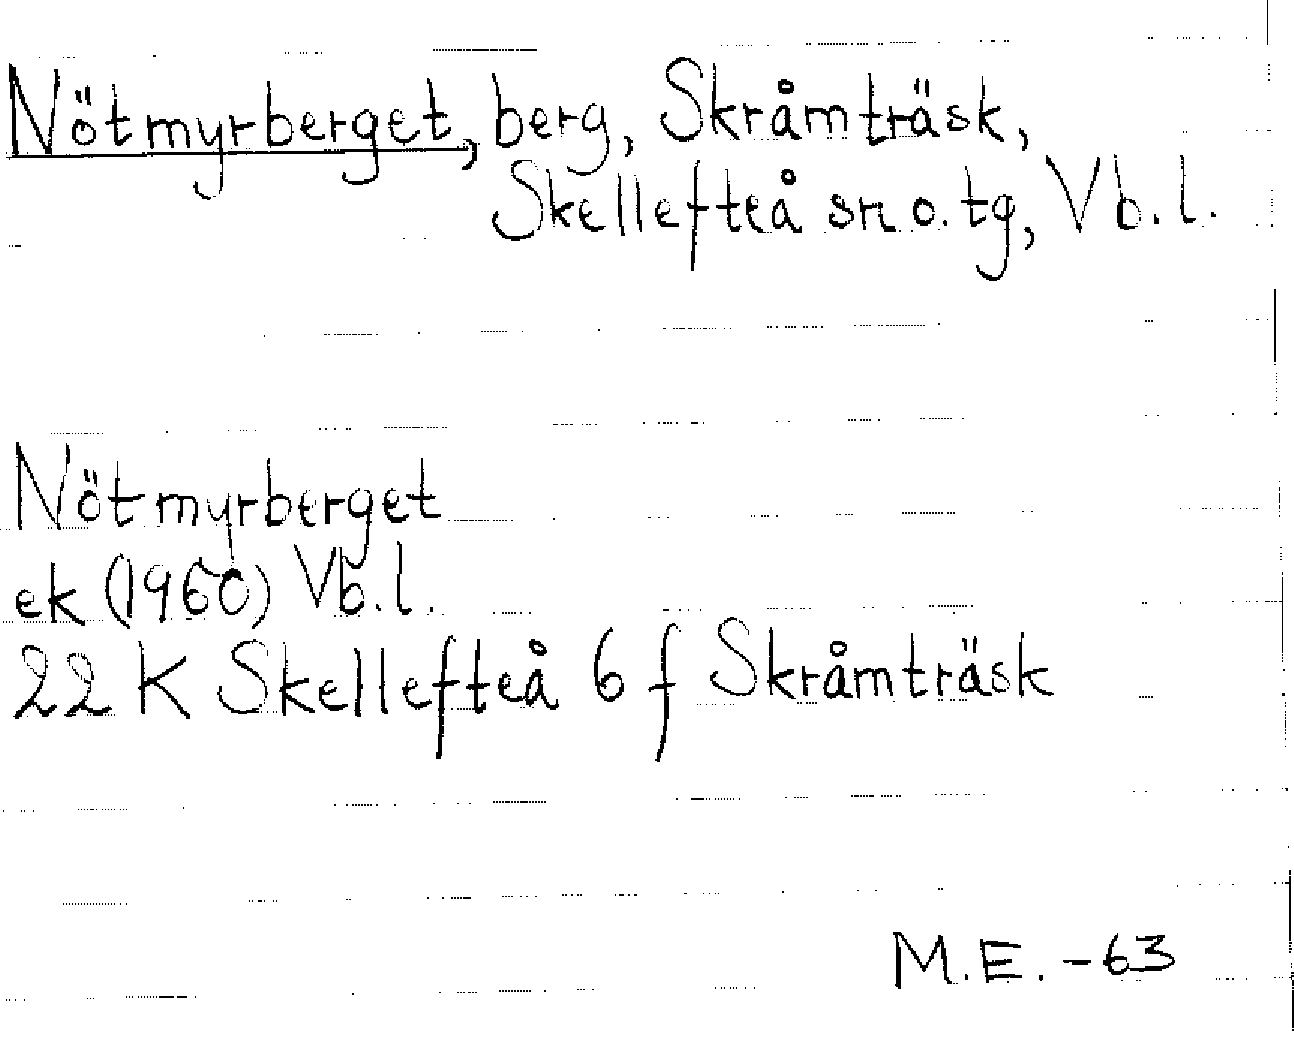 Nötmyrberget, berg, Skråmträsk,
Skellefteå sn o. tg, Vb. l.
Nötmyrberget
ek (1960) Vb. l.
22 K Skellefteå 6 f Skråmträsk
M.E. -63